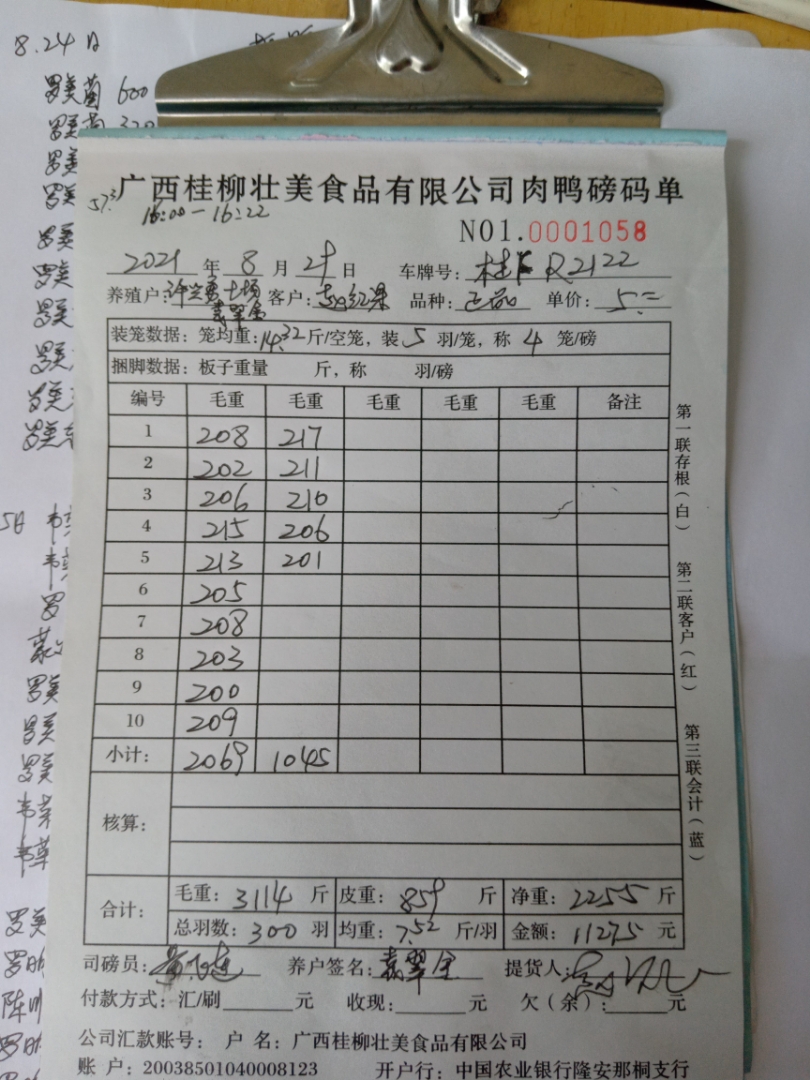 8.24日
罗美菌 600
罗美菌 320
573
广西桂柳壮美食品有限公司肉鸭磅码单
16:00-16:22
NO1.0001058
2021年8月29日 车牌号: R2122
养殖户: 客户: 品种:正品 单价:5.=
装笼数据:笼均重:14.32斤/空笼,装5羽/笼,称4笼/磅
捆脚数据:板子重量 斤,称 羽/磅
编号 毛重 毛重 毛重 毛重 毛重 备注
1 208 217
2 202 211
3 206 210
4 215 206
5 213 201
6 205
7 208
8 203
9 200
10 209
小计: 2069 1045
核算:
合计: 毛重:3114斤 皮重:859斤 净重:2255斤
总羽数:300羽 均重:7.52斤/羽 金额:11275元
司磅员: 养户签名: 提货人:
付款方式:汇/刷 元 收现: 元 欠(余): 元
公司汇款账号: 户 名:广西桂柳壮美食品有限公司
账 户:20038501040008123 开户行:中国农业银行隆安那桐支行
第一联存根(白)
第二联客户(红)
第三联会计(蓝)